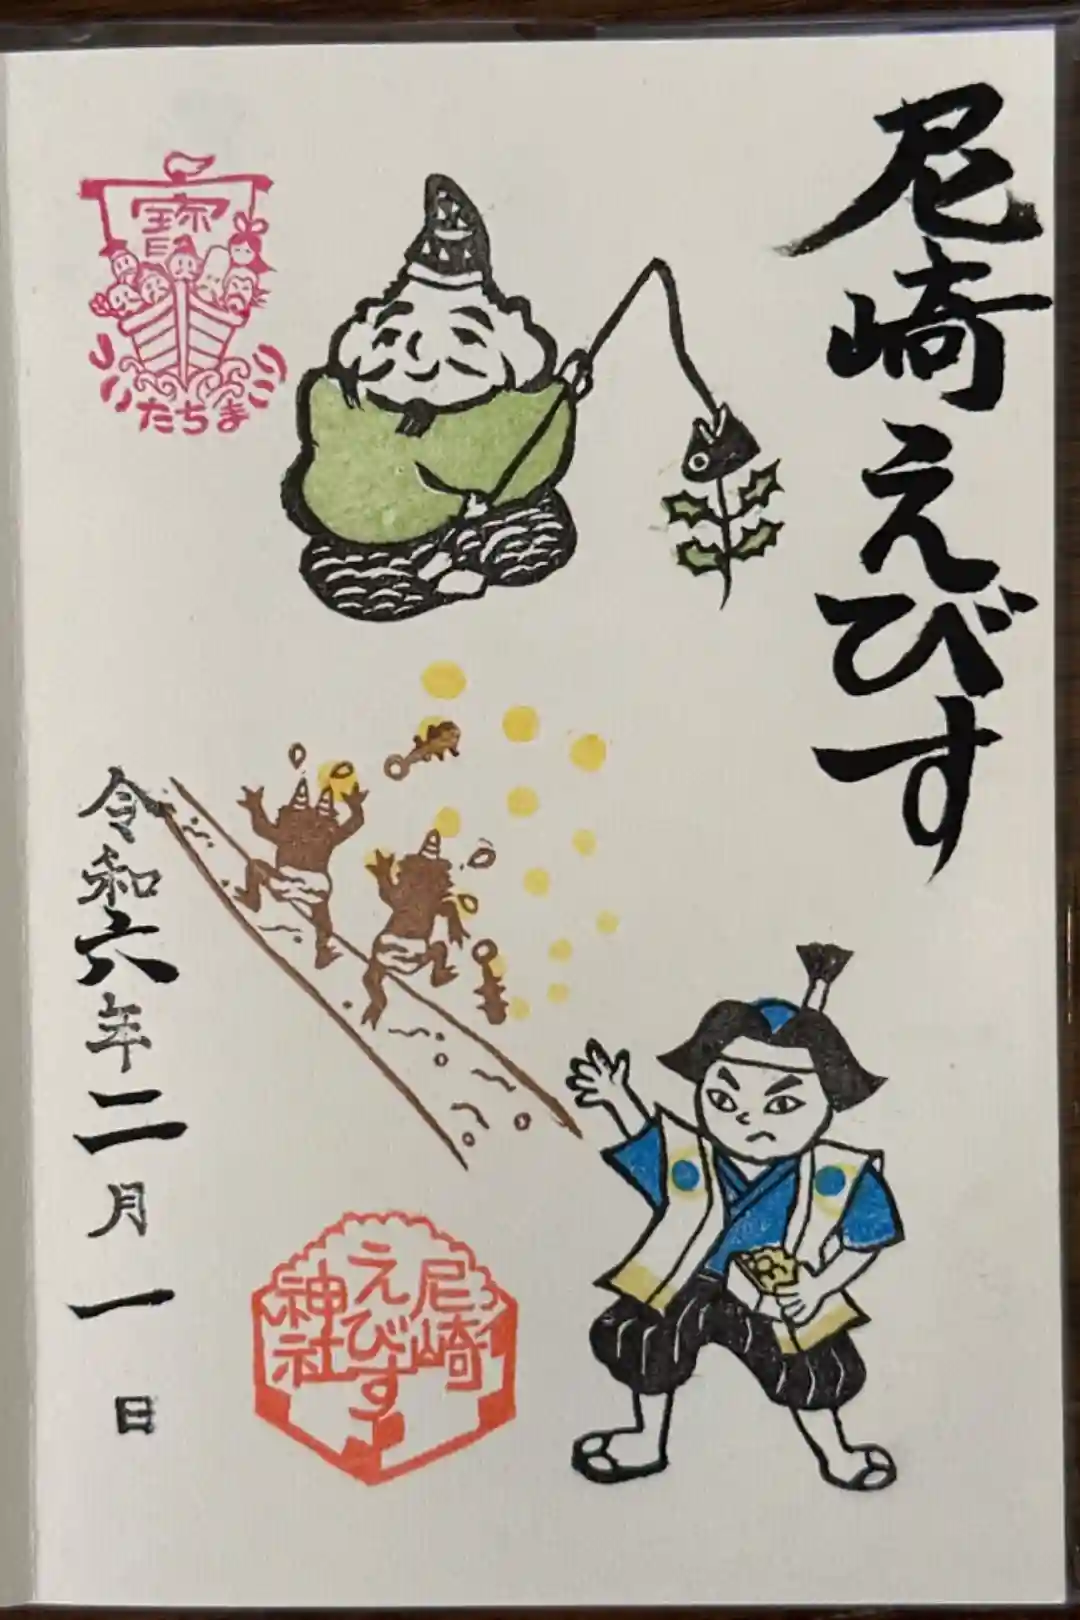 尼崎えびす
寳
たちまち
尼崎
えびす
神社
令和六年二月一日